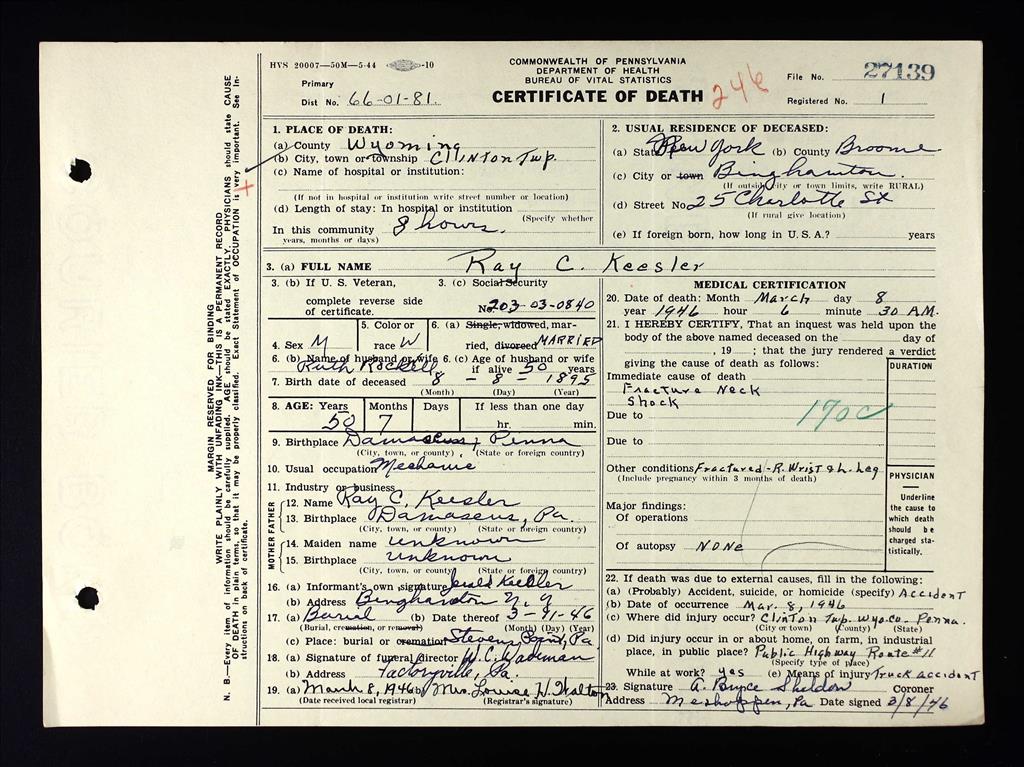 HVS 20007—50M—5-44 -10
COMMONWEALTH OF PENNSYLVANIA
DEPARTMENT OF HEALTH
BUREAU OF VITAL STATISTICS
CERTIFICATE OF DEATH
246
Primary
Dist No. 66-01-81.
File No. 27139
Registered No. 1
MARGIN RESERVED FOR BINDING
WRITE PLAINLY WITH UNFADING INK—THIS IS A PERMANENT RECORD
N. B.—Every item of information should be carefully supplied. AGE should be stated EXACTLY. PHYSICIANS should state CAUSE
OF DEATH in plain terms, so that it may be properly classified. Exact Statement of OCCUPATION is very important. See In-
structions on back of certificate.
1. PLACE OF DEATH:
(a) County Wyoming
(b) City, town or township Clinton Twp.
(c) Name of hospital or institution:
(If not in hospital or institution write street number or location)
(d) Length of stay: In hospital or institution
(Specify whether
In this community 8 hours.
years, months or days)
2. USUAL RESIDENCE OF DECEASED:
(a) State New York (b) County Broome
(c) City or town Binghamton.
(If outside city or town limits, write RURAL)
(d) Street No. 25 Charlotte St
(If rural give location)
(e) If foreign born, how long in U. S. A.? years
3. (a) FULL NAME Ray C. Keesler
3. (b) If U. S. Veteran,
complete reverse side
of certificate.
3. (c) Social Security
No. 203-03-0840
4. Sex M
5. Color or
race W
6. (a) Single, widowed, mar-
ried, divorced MARRIED
6. (b) Name of husband or wife
Ruth Rockell
6. (c) Age of husband or wife
if alive 50 years
7. Birth date of deceased 8 - 8 - 1895
(Month) (Day) (Year)
8. AGE: Years Months Days If less than one day
50 7 hr. min.
9. Birthplace Damascus, Penna
(City, town, or county) (State or foreign country)
10. Usual occupation Mechanic
11. Industry or business
FATHER
12. Name Ray C. Keesler
13. Birthplace Damascus, Pa.
(City, town, or county) (State or foreign country)
MOTHER
14. Maiden name unknown
15. Birthplace unknown
(City, town, or county) (State or foreign country)
16. (a) Informant's own signature Keesler
(b) Address Binghamton N.Y
17. (a) Burial (b) Date thereof 3-11-46
(Burial, cremation, or removal) (Month) (Day) (Year)
(c) Place: burial or cremation Stevens Point, Pa.
18. (a) Signature of funeral director W.C. Wademan
(b) Address Factoryville, Pa.
19. (a) March 8, 1946 (b) Mrs. Louise H. Walton
(Date received local registrar) (Registrar's signature)
MEDICAL CERTIFICATION
20. Date of death: Month March day 8
year 1946 hour 6 minute 30 AM.
21. I HEREBY CERTIFY, That an inquest was held upon the
body of the above named deceased on the day of
, 19 ; that the jury rendered a verdict
giving the cause of death as follows:
DURATION
Immediate cause of death
Fracture Neck
Shock
Due to
170c
Due to
Other conditions Fractured - R. Wrist & L. Leg
(Include pregnancy within 3 months of death)
Major findings:
Of operations
Of autopsy NONE
PHYSICIAN
Underline
the cause to
which death
should be
charged sta-
tistically.
22. If death was due to external causes, fill in the following:
(a) (Probably) Accident, suicide, or homicide (specify) Accident
(b) Date of occurrence Mar. 8, 1946
(c) Where did injury occur? Clinton Twp. Wyo. Co. Penna.
(City or town) (County) (State)
(d) Did injury occur in or about home, on farm, in industrial
place, in public place? Public Highway Route #11
(Specify type of place)
While at work? yes (e) Means of injury Truck accident
23. Signature A. Bryce Sheldon Coroner
Address Meshoppen, Pa Date signed 3/8/46